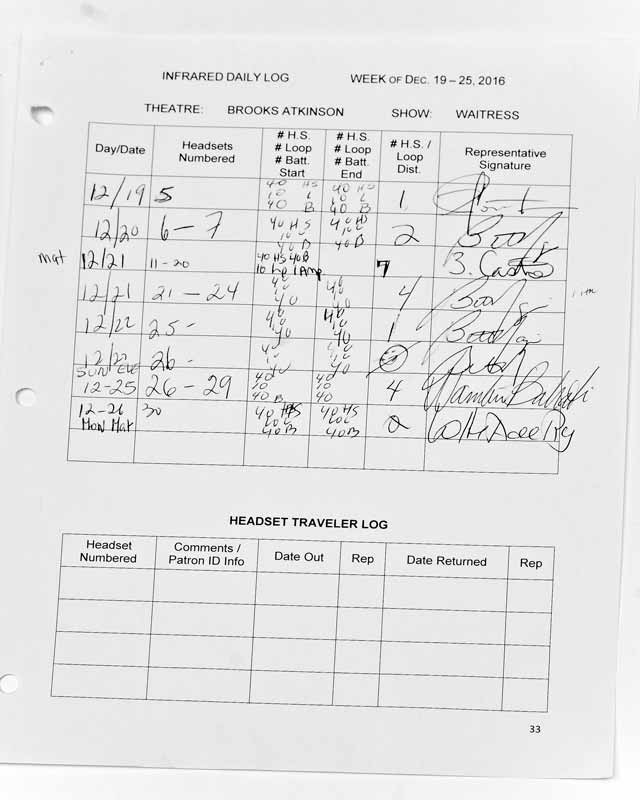 INFRARED DAILY LOG WEEK OF DEC. 19 – 25, 2016
THEATRE: BROOKS ATKINSON SHOW: WAITRESS
Day/Date Headsets Numbered # H.S. # Loop # Batt. Start # H.S. # Loop # Batt. End # H.S. / Loop Dist. Representative Signature
12/19 5 40 HS 10 L 40 B 40 HS 10 L 40 B 1
12/20 6 – 7 40 HS 10 40B 40 HS 10 40B 2
mat 12/21 11-20 40 HS 40B 10 Lp 1 Amp 7 B. Castro
12/21 21 – 24 40 10 40 40 10 40 4
12/22 25- 40 10 40 40 10 40 1
26-
SUN EVE 12-25 26 – 29 40 10 40 B 40 10 40 4
12-26 Mon Mat 30 40 HS 40B 40 HS 40B
HEADSET TRAVELER LOG
Headset Numbered Comments / Patron ID Info Date Out Rep Date Returned Rep
33